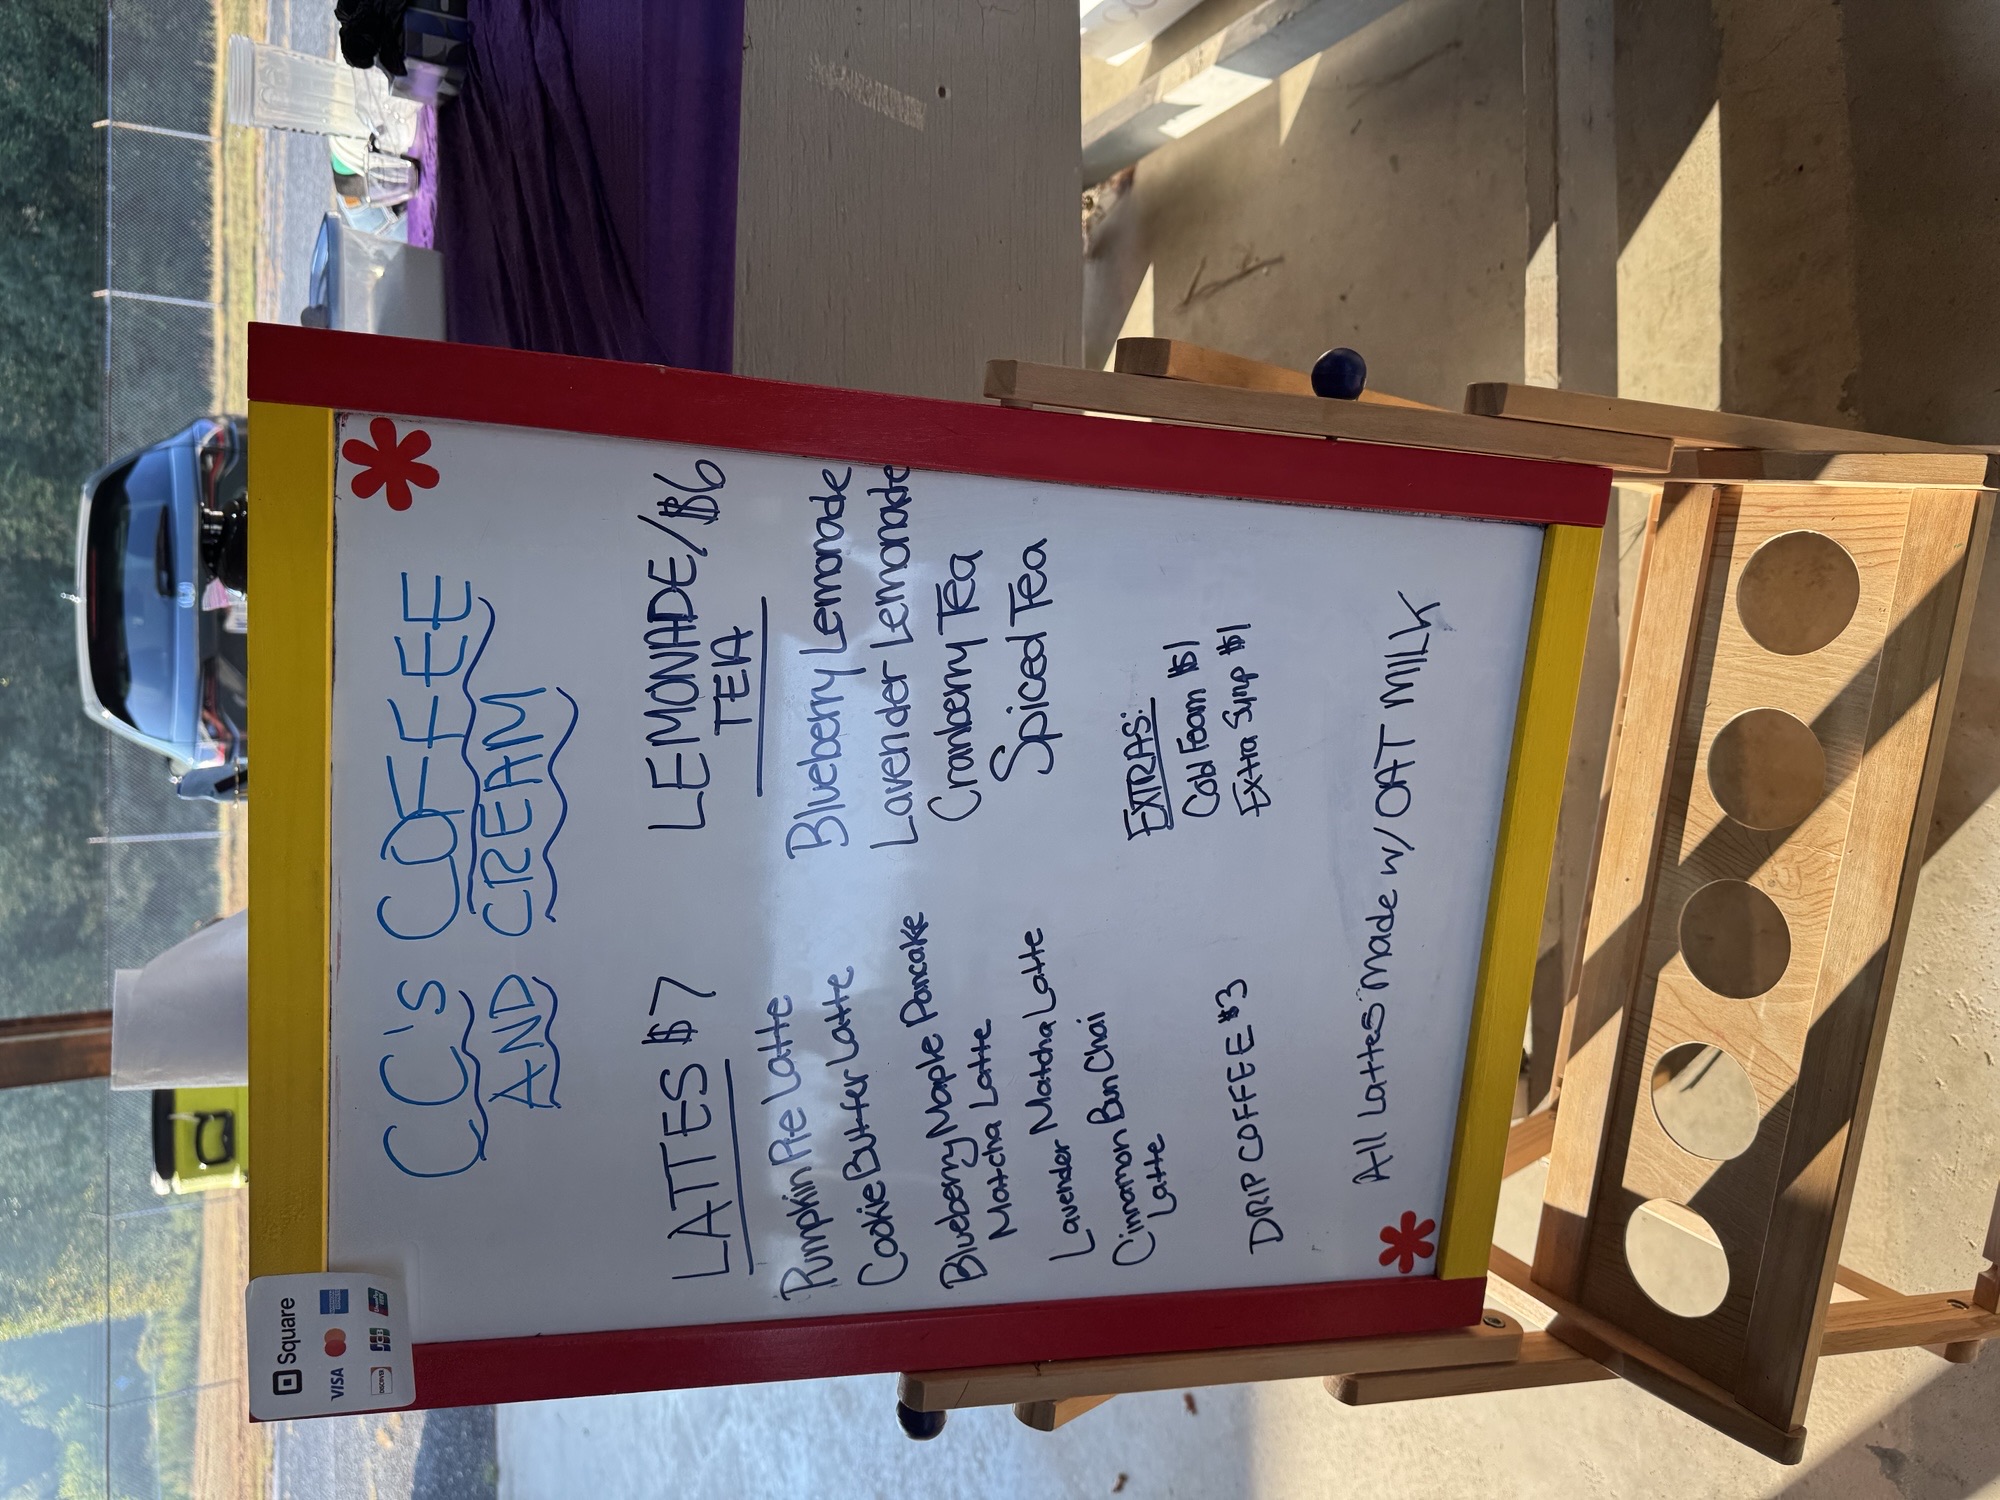 Square
VISA
DISCOVER
JCB
CC's COFFEE
AND CREAM
LATTES $7
Pumpkin Pie Latte
Cookie Butter Latte
Blueberry Maple Pancake
Matcha Latte
Lavender Matcha Latte
Cinnamon Bun Chai
Latte
DRIP COFFEE $3
LEMONADE/ $6
TEA
Blueberry Lemonade
Lavender Lemonade
Cranberry Tea
Spiced Tea
EXTRAS:
Cold Foam $1
Extra Syrup $1
All Lattes made w/ OAT MILK